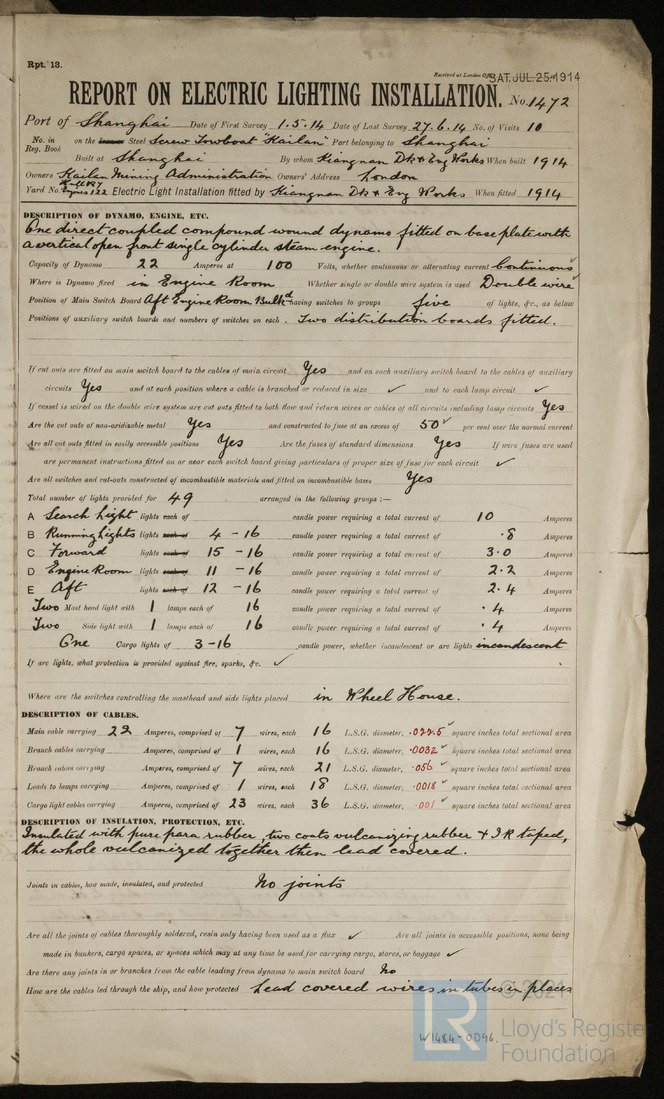 Rpt. 13.
Received at London Office SAT. JUL. 25. 1914
REPORT ON ELECTRIC LIGHTING INSTALLATION. No. 1472
Port of Shanghai Date of First Survey 1.5.14 Date of Last Survey 27.6.14 No. of Visits 10
No. in Reg. Book on the Steel Screw Towboat "Kailan" Port belonging to Shanghai
Built at Shanghai By whom Kiangnan Dk & Eng Works When built 1914
Owners Kailan Mining Administration Owners' Address London
Yard No. Electric Light Installation fitted by Kiangnan Dk & Eng Works When fitted 1914
DESCRIPTION OF DYNAMO, ENGINE, ETC.
One direct coupled compound wound dynamo fitted on base plate with
a vertical open front single cylinder steam engine.
Capacity of Dynamo 22 Amperes at 100 Volts, whether continuous or alternating current Continuous
Where is Dynamo fixed in Engine Room Whether single or double wire system is used Double wire
Position of Main Switch Board Aft Engine Room Bulkd having switches to groups five of lights, &c., as below
Positions of auxiliary switch boards and numbers of switches on each Two distribution boards fitted.
If cut outs are fitted on main switch board to the cables of main circuit Yes and on each auxiliary switch board to the cables of auxiliary
circuits Yes and at each position where a cable is branched or reduced in size ✓ and to each lamp circuit ✓
If vessel is wired on the double wire system are cut outs fitted to both flow and return wires or cables of all circuits including lamp circuits Yes
Are the cut outs of non-oxidizable metal Yes and constructed to fuse at an excess of 50 ✓ per cent over the normal current
Are all cut outs fitted in easily accessible positions Yes Are the fuses of standard dimensions Yes If wire fuses are used
are permanent instructions fitted on or near each switch board giving particulars of proper size of fuse for each circuit ✓
Are all switches and cut-outs constructed of incombustible materials and fitted on incombustible bases Yes
Total number of lights provided for 49 arranged in the following groups :—
A Search light lights each of candle power requiring a total current of 10 Amperes
B Running Lights lights each of 4 - 16 candle power requiring a total current of .8 Amperes
C Forward lights each of 15 - 16 candle power requiring a total current of 3.0 Amperes
D Engine Room lights each of 11 - 16 candle power requiring a total current of 2.2 Amperes
E Aft lights each of 12 - 16 candle power requiring a total current of 2.4 Amperes
Two Mast head light with 1 lamps each of 16 candle power requiring a total current of .4 Amperes
Two Side light with 1 lamps each of 16 candle power requiring a total current of .4 Amperes
One Cargo lights of 3 - 16 candle power, whether incandescent or arc lights incandescent
If arc lights, what protection is provided against fire, sparks, &c. ✓
Where are the switches controlling the masthead and side lights placed in Wheel House.
DESCRIPTION OF CABLES.
Main cable carrying 22 Amperes, comprised of 7 wires, each 16 L.S.G. diameter, .0225 ✓ square inches total sectional area
Branch cables carrying Amperes, comprised of 1 wires, each 16 L.S.G. diameter, .0032 ✓ square inches total sectional area
Branch cables carrying Amperes, comprised of 7 wires, each 21 L.S.G. diameter, .056 ✓ square inches total sectional area
Leads to lamps carrying Amperes, comprised of 1 wires, each 18 L.S.G. diameter, .0018 ✓ square inches total sectional area
Cargo light cables carrying Amperes, comprised of 23 wires, each 36 L.S.G. diameter, .001 ✓ square inches total sectional area
DESCRIPTION OF INSULATION, PROTECTION, ETC.
Insulated with pure para rubber, two coats vulcanizing rubber & I R taped,
the whole vulcanized together then lead covered.
Joints in cables, how made, insulated, and protected No joints
Are all the joints of cables thoroughly soldered, resin only having been used as a flux ✓ Are all joints in accessible positions, none being
made in bunkers, cargo spaces, or spaces which may at any time be used for carrying cargo, stores, or baggage ✓
Are there any joints in or branches from the cable leading from dynamo to main switch board No
How are the cables led through the ship, and how protected Lead covered wires in tubes in places
© 2021
LR Lloyd's Register
Foundation
W1484-0096.